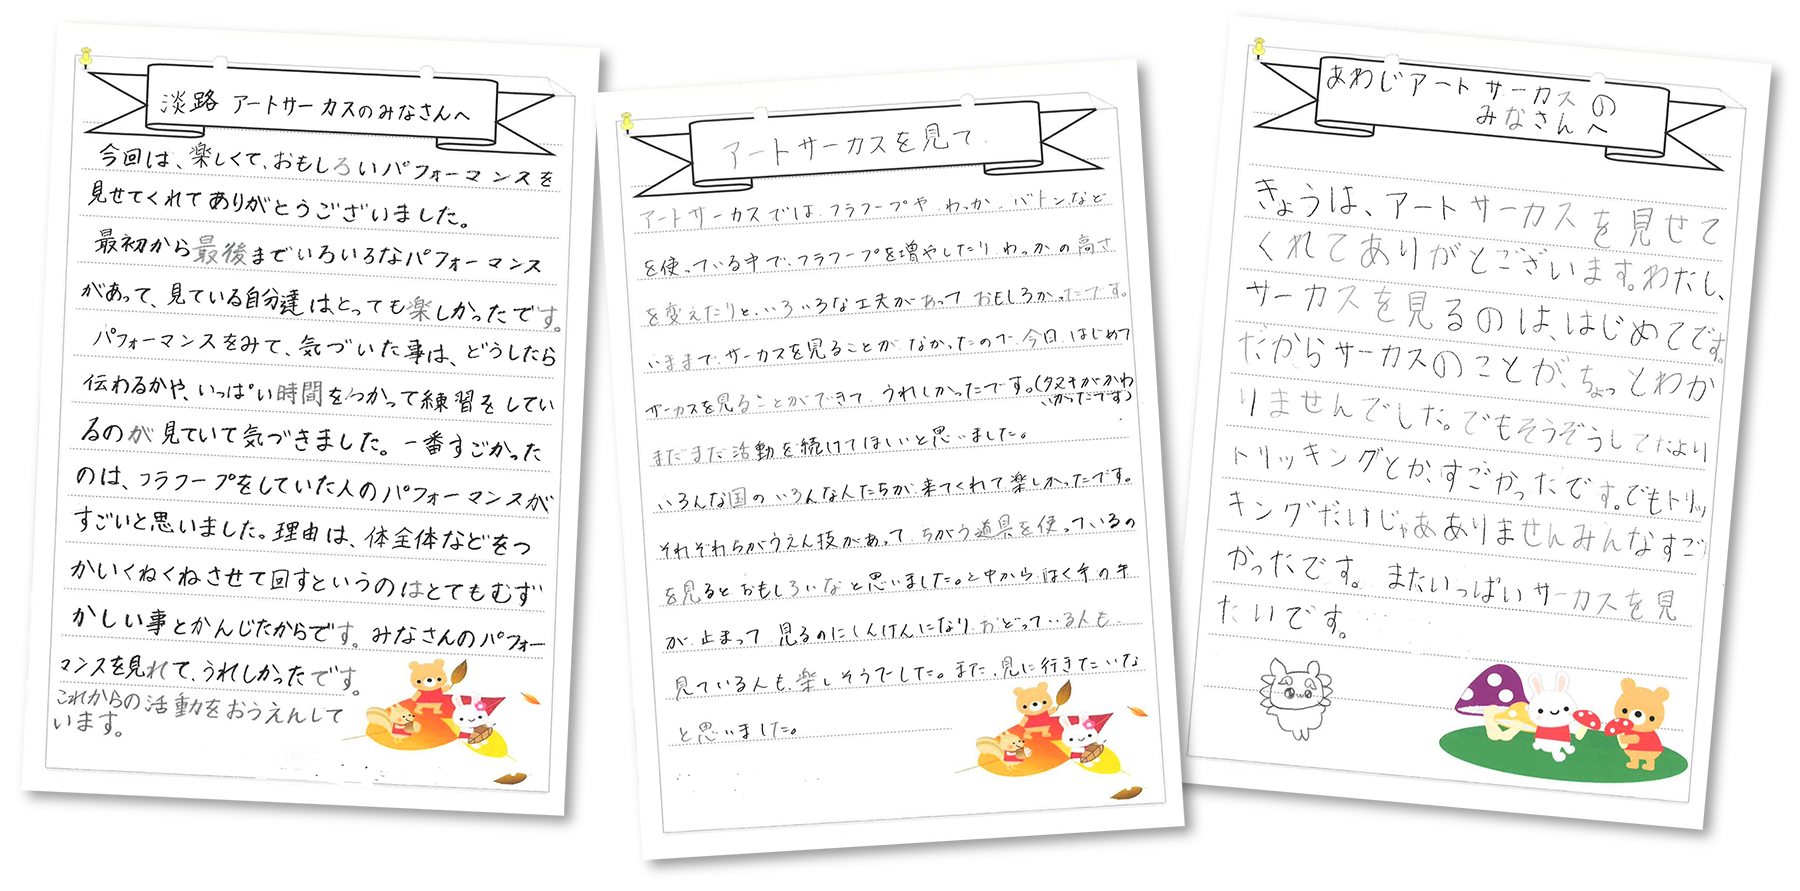 淡路 アートサーカスのみなさんへ
今回は、楽しくて、おもしろいパフォーマンスを
見せてくれてありがとうございました。
最初から最後までいろいろなパフォーマンス
があって、見ている自分達はとっても楽しかったです。
パフォーマンスをみて、気づいた事は、どうしたら
伝わるかや、いっぱい時間をつかって練習をしてい
るのが見ていて気づきました。一番すごかった
のは、フラフープをしていた人のパフォーマンスが
すごいと思いました。理由は、体全体などをつ
かいくねくねさせて回すというのはとてもむず
かしい事とかんじたからです。みなさんのパフォー
マンスを見れて、うれしかったです。
これからの活動をおうえんして
います。
アートサーカスを見て
アートサーカスでは、フラフープや、わっか、バトンなど
を使っている中で、フラフープを増やしたり、わっかの高さ
を変えたりと、いろいろな工夫があっておもしろかったです。
いままで、サーカスを見ることがなかったので、今日、はじめて
サーカスを見ることができて、うれしかったです。(タヌキがかわ
いかったです)
まだまだ活動を続けてほしいと思いました。
いろんな国のいろんな人たちが来てくれて楽しかったです。
それぞれちがうえん技があって、ちがう道具を使っているの
を見るとおもしろいなと思いました。と中から、はく手の手
が止まって見るのにしんけんになり、おどっている人も、
見ている人も、楽しそうでした。また、見に行きたいな
と思いました。
あわじアートサーカスの
みなさんへ
きょうは、アートサーカスを見せて
くれてありがとございます。わたし、
サーカスを見るのは、はじめてです。
だからサーカスのことが、ちょっとわか
りませんでした。でもそうぞうしてたより
トリッキングとか、すごかったです。でもトリッ
キングだけじゃあありませんみんなすご
かったです。またいっぱいサーカスを見
たいです。